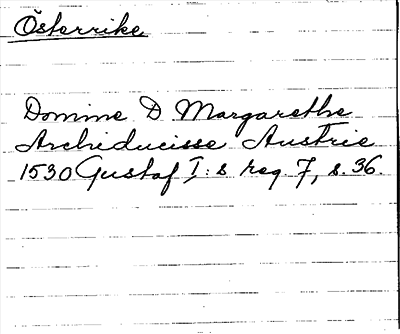 Österrike
Domine D Margarethe
Archiducisse Austrie
1530 Gustaf I:s reg 7, s. 36.